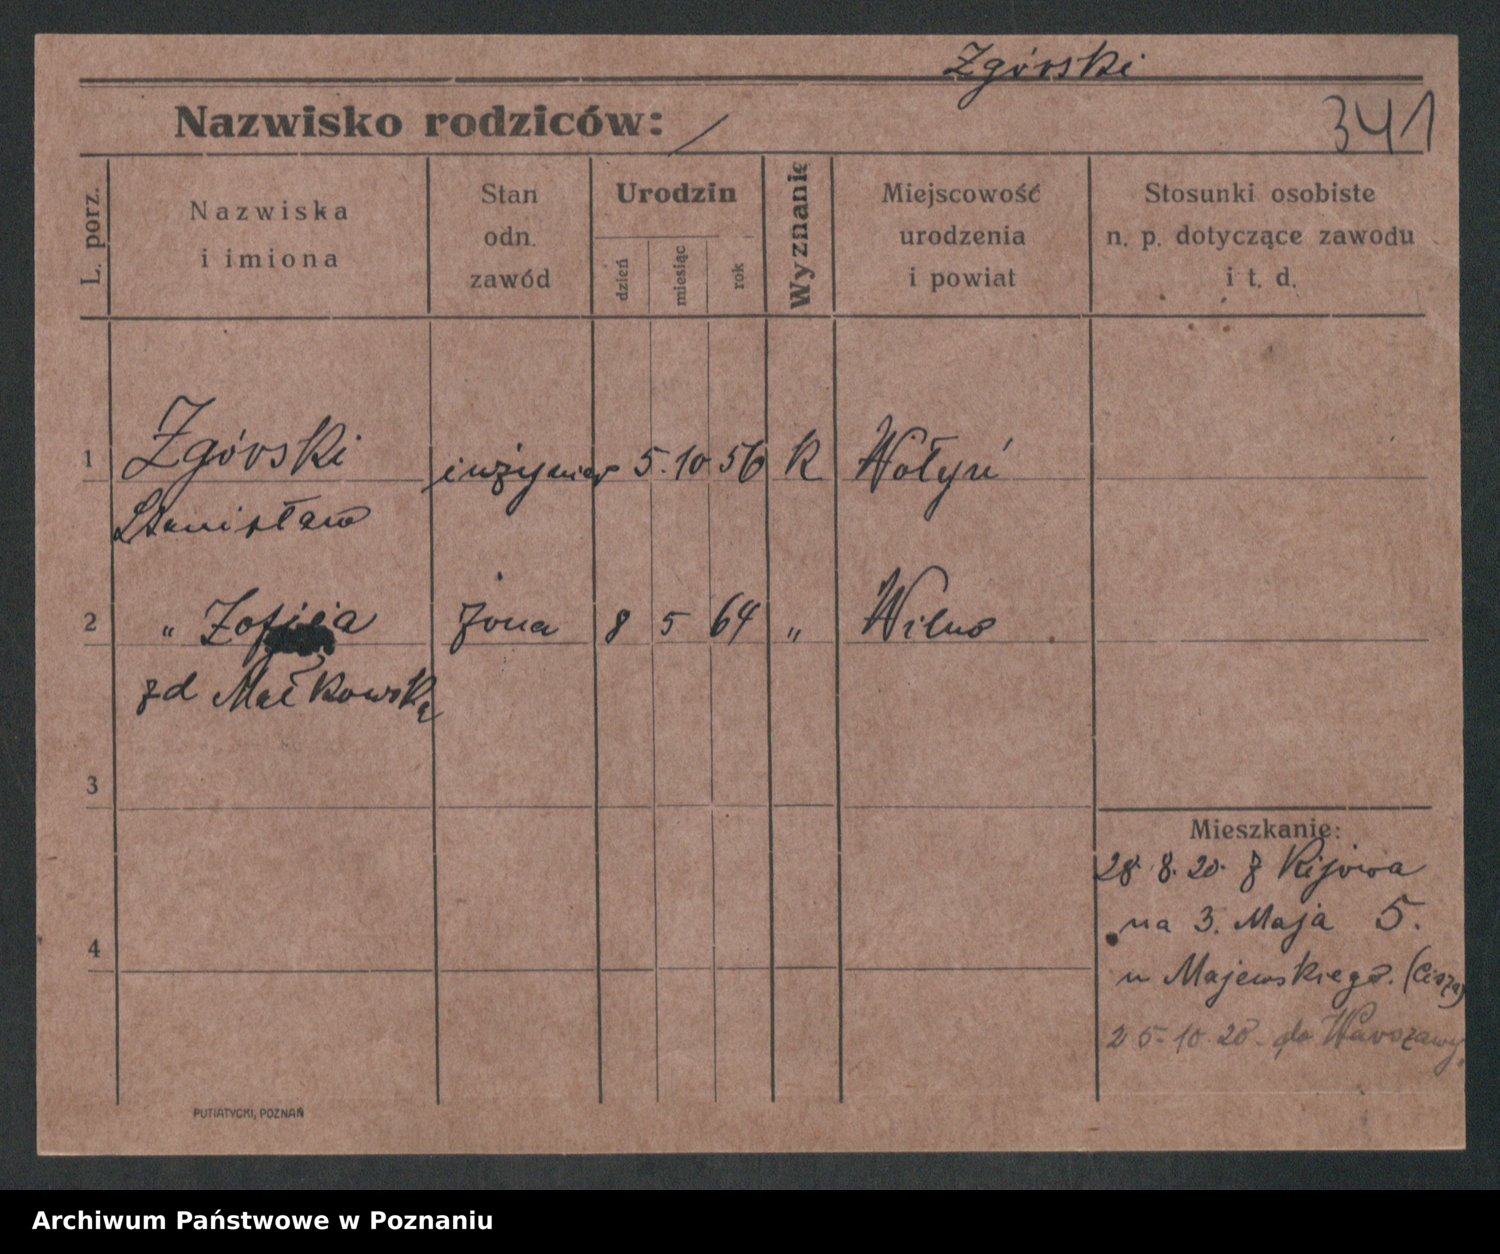 Zgórski
Nazwisko rodziców: /
341
L. porz.
Nazwiska
i imiona
Stan
odn.
zawód
Urodzin
dzień
miesiąc
rok
Wyznanie
Miejscowość
urodzenia
i powiat
Stosunki osobiste
n. p. dotyczące zawodu
i t. d.
1 Zgórski inżynier 5. 10 56 K Wołyń
Stanisław
2 „ Zofija żona 8 5 64 „ Wilno
zd Małkowska
3
Mieszkanie:
28. 8. 20. z Kijowa
na 3. Maja 5.
4
u Majewskiego. (Cisza)
25-10-20. do Warszawy.
PUTIATYCKI, POZNAŃ
Archiwum Państwowe w Poznaniu